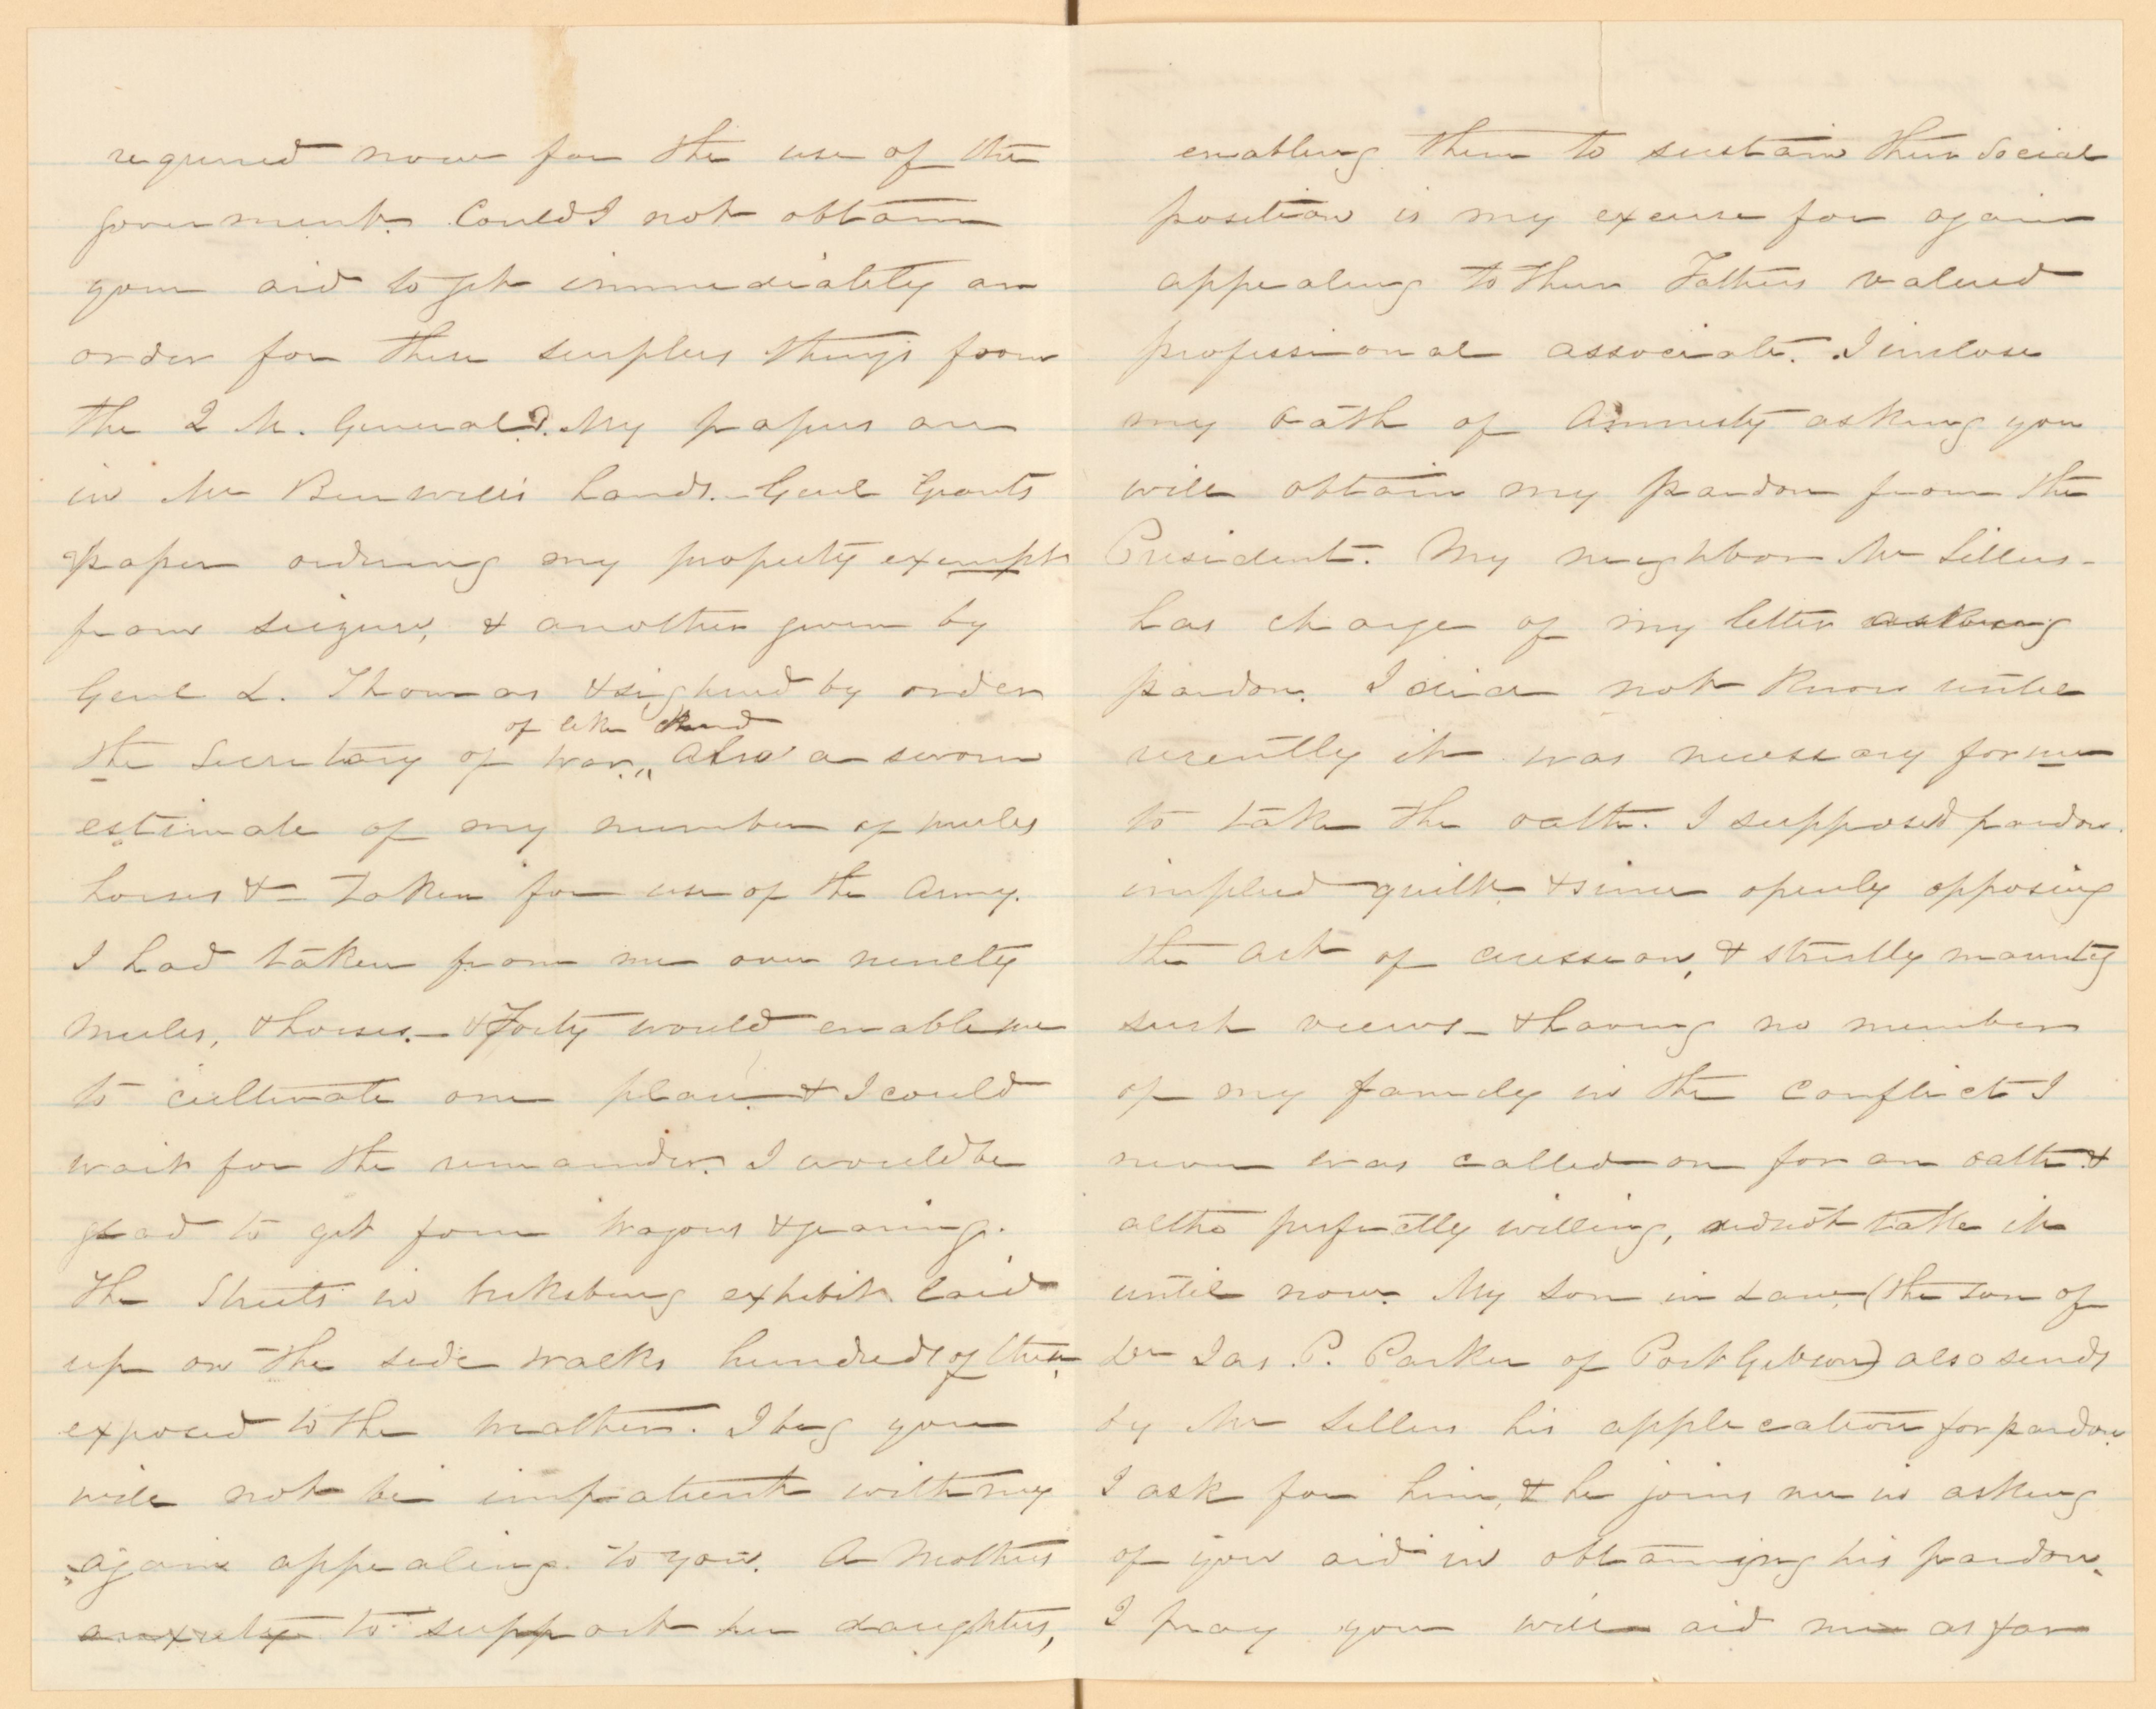 required now for the use of the
goverment. Could I not obtain
your aid to get immediately an
order for these surplus things from
the Q M. General?. My papers are
in Mr hands. Genl Grants
paper ordering my property exempt
from seizure, & another given by
Genl L. Thomas & sighned by order
of like kind
the Secretary of War. Also a sworn
estimate of my number of mules
horses &– taken for use of the Army.
I had taken from me over ninety
mules, & horses.– & Forty would enable me
to cultivate one place. & I could
wait for the remainder. I would be
glad to get four wagons & gearing.
The Streets in Vicksburg exhibit laid
up on the side walks hundreds of them,
exposed to the weather. I beg you
will not be impatient with my
again appealing to you. A Mothers
anxiety to support her daughters,
enabling them to sustain their Social
position is my excuse for again
appealing to their Fathers valued
professional associate. I inclose
my oath of Amnesty asking you
will obtain my pardon from the
President. My neighbor Mr Sillers–
has charge of my letter asking
pardon. I did not know until
recently it was necessary for me
to take the oath. I supposed pardon
implied guilt & since openly opposing
the act of cecession, & strictly
such views – & having no member
of my family in the conflict I
never was called on for an oath &
altho perfectly willing, did not take it
until now. My son in Law (the son of
Dr Jas. P. Parker of Port Gibson) also sends
by Mr Sillers his application for pardon
I ask for him, & he joins me in asking
of your aid in obtaining his pardon.
I pray you will aid me as far